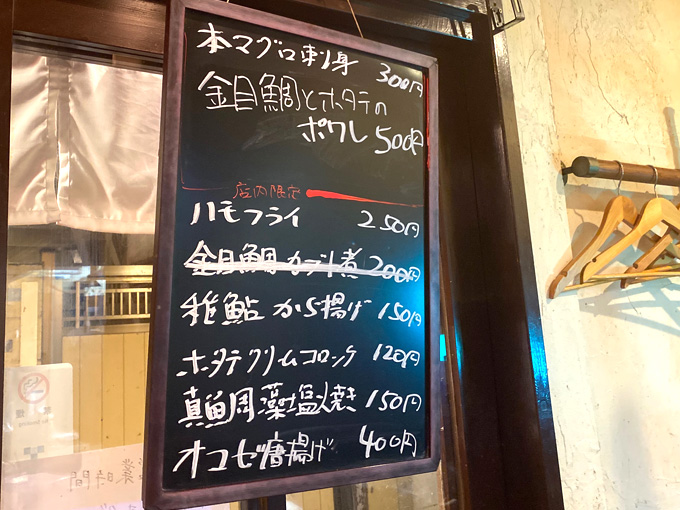 本マグロ刺身 300円
金目鯛とホタテの
ポワレ 500円
店内限定
ハモフライ 250円
金目鯛カブト煮 200円
稚鮎 から揚げ 150円
ホタテクリームコロッケ 120円
真鯛藻塩焼き 150円
オコゼ唐揚げ 400円
禁煙
No Smoking
業時間